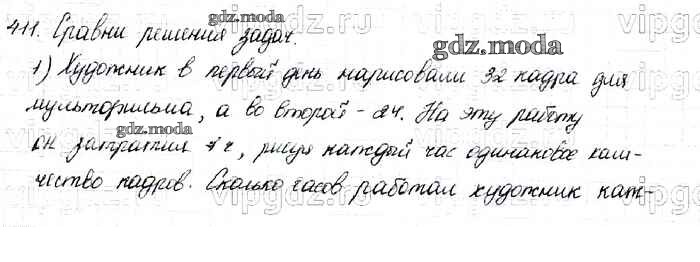 411. Сравни решения задач.
1) Художник в первый день нарисовали 32 кадра для
мультфильма, а во второй - 24. На эту работу
он затратил 7 ч, рисуя каждый час одинаковое коли-
чество кадров. Сколько часов работал художник каж-
gdz.moda
gdz.moda
gdz.moda
gdz.moda